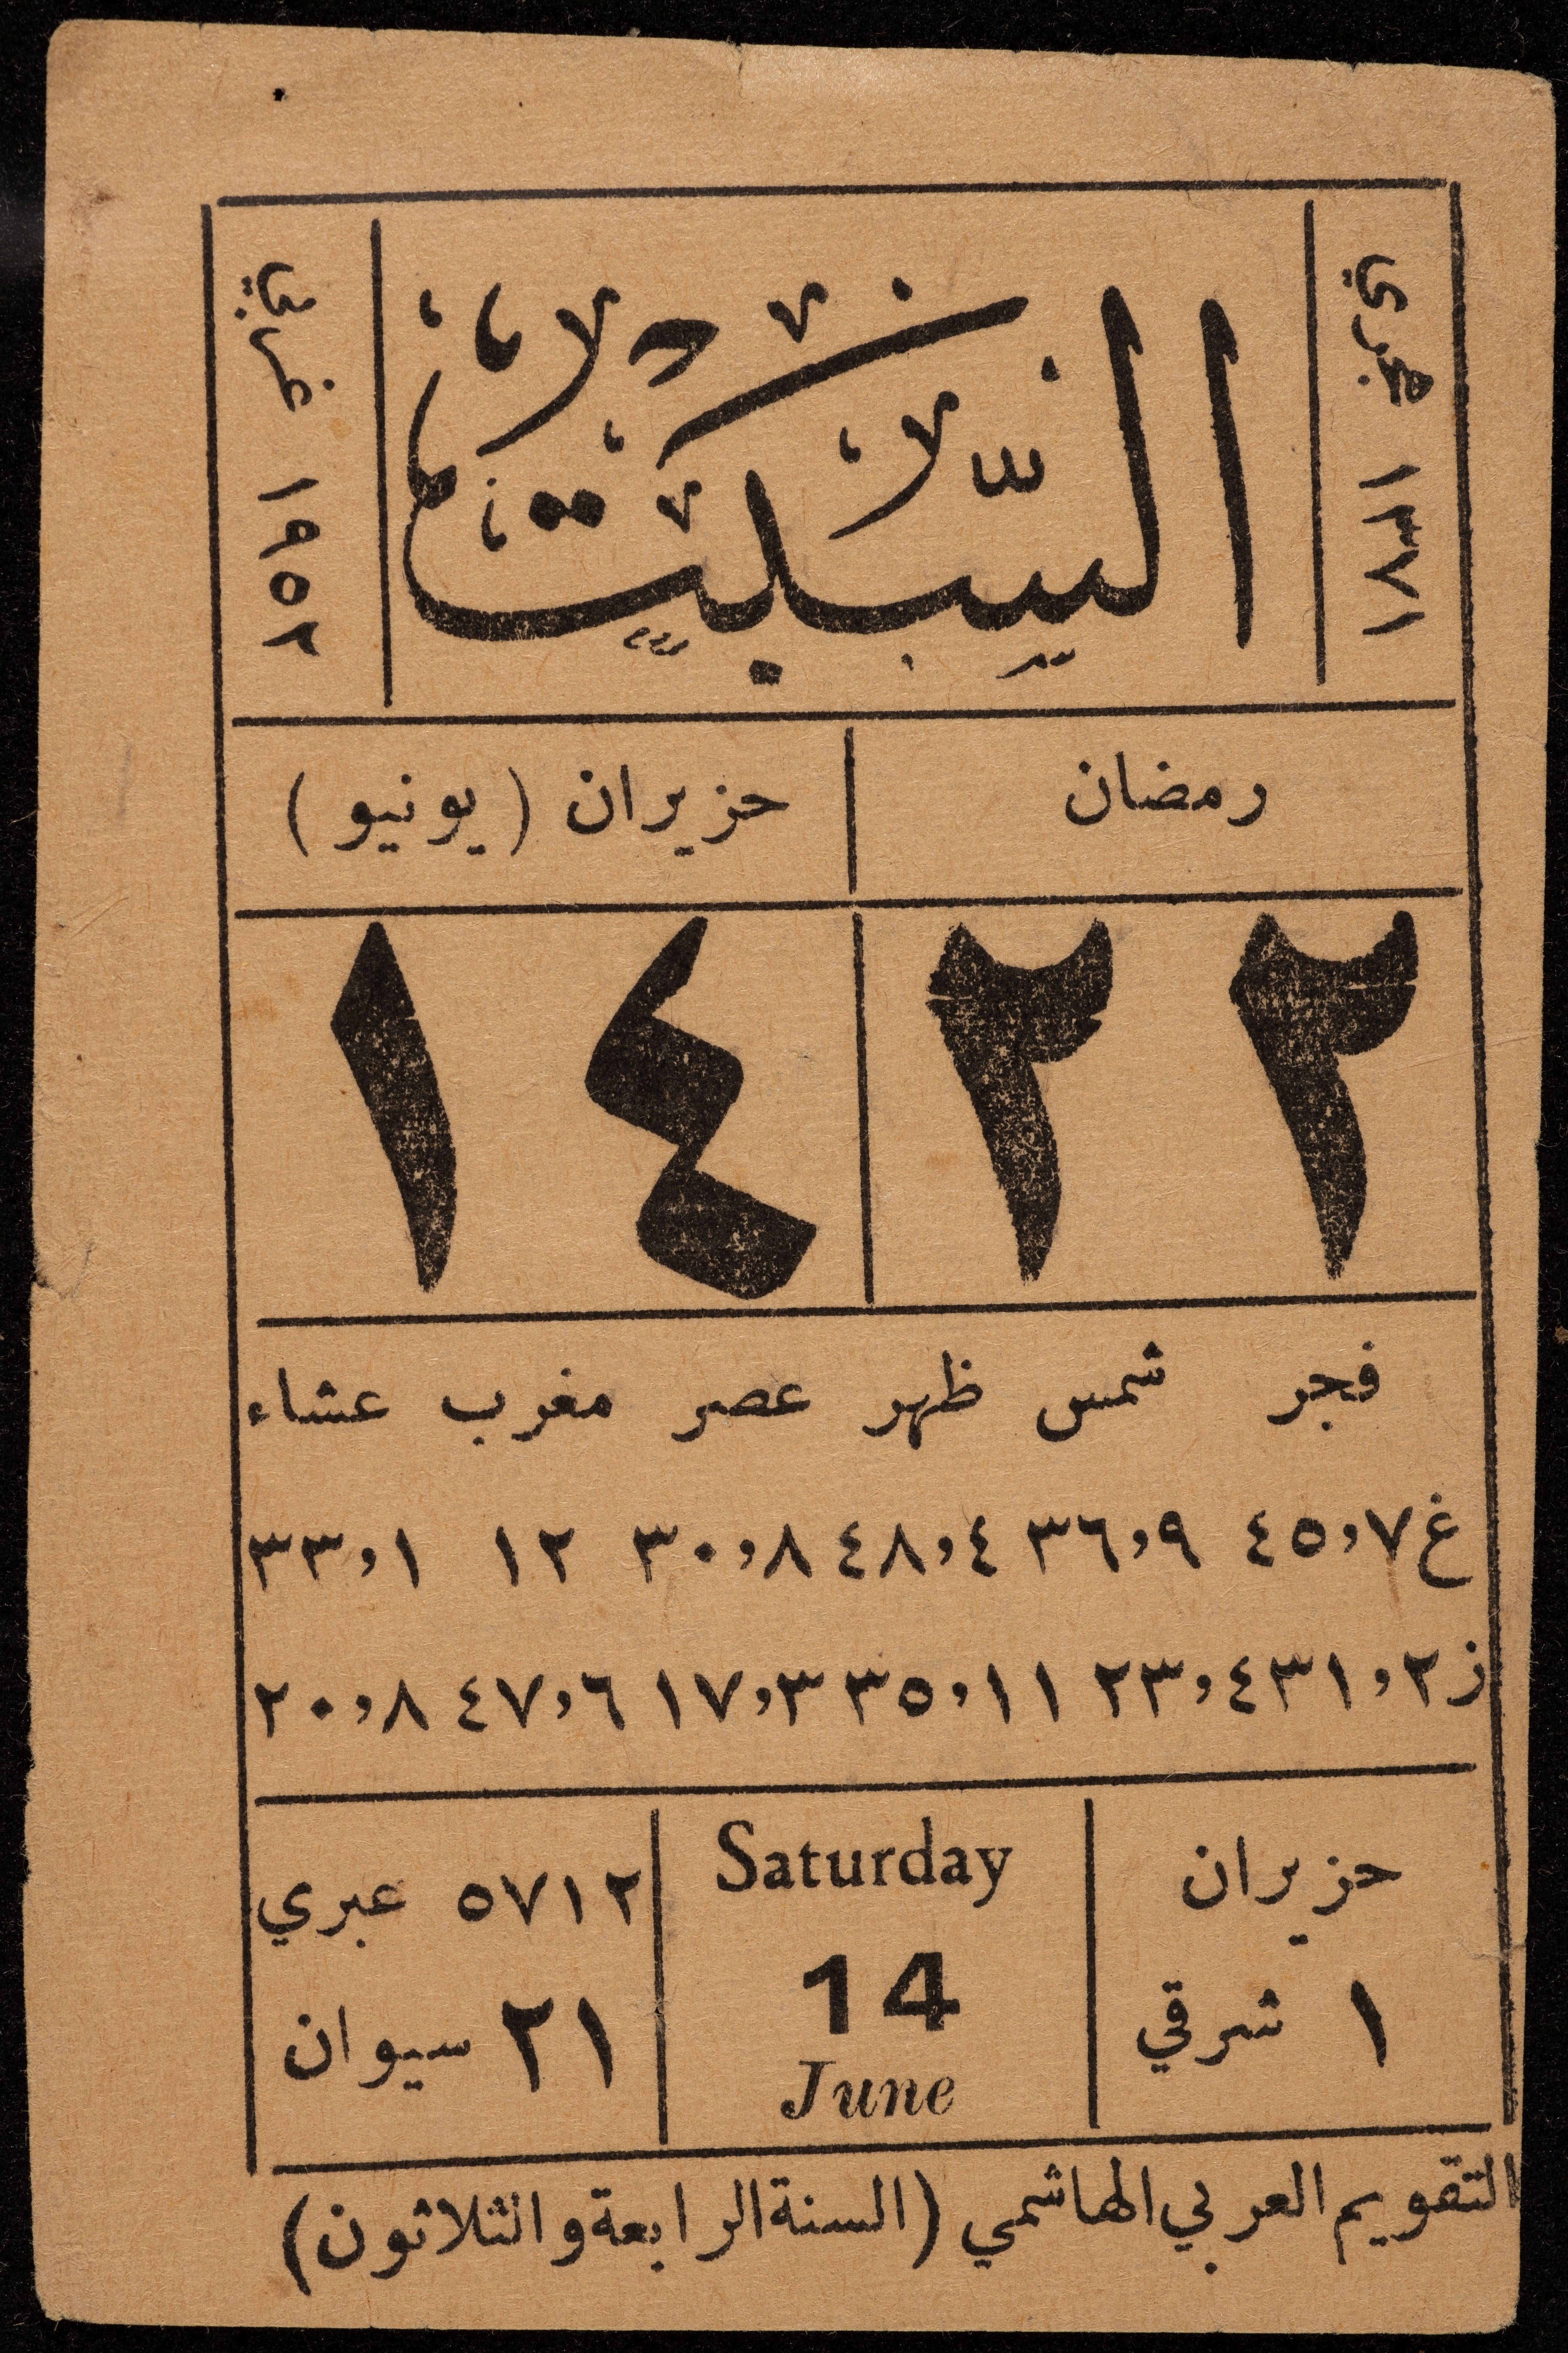 هجري ١٣٧١
السبت
غربي ١٩٥٢
رمضان
حزيران (يونيو)
٢٢
١٤
فجر شمس ظهر عصر مغرب عشاء
غ ٤٥,٧ ٣٦,٩ ٤٨,٤ ٣٠,٨ ١٢ ٣٣,١
ز ٣١,٢ ٢٣,٤ ٣٥,١١ ١٧,٣ ٤٧,٦ ٢٠,٨
حزيران
١ شرقي
Saturday
14
June
٥٧١٢ عبري
٢١ سيوان
التقويم العربي الهاشمي (السنة الرابعة والثلاثون)